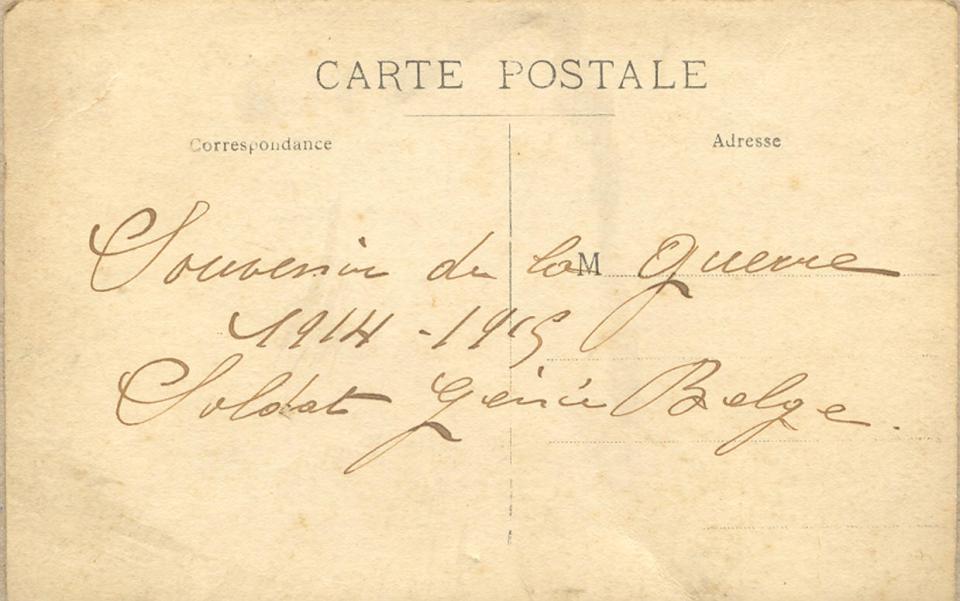 CARTE POSTALE
Correspondance
Adresse
M
Souvenir de la Guerre
1914-1915
Soldat Génie Belge.